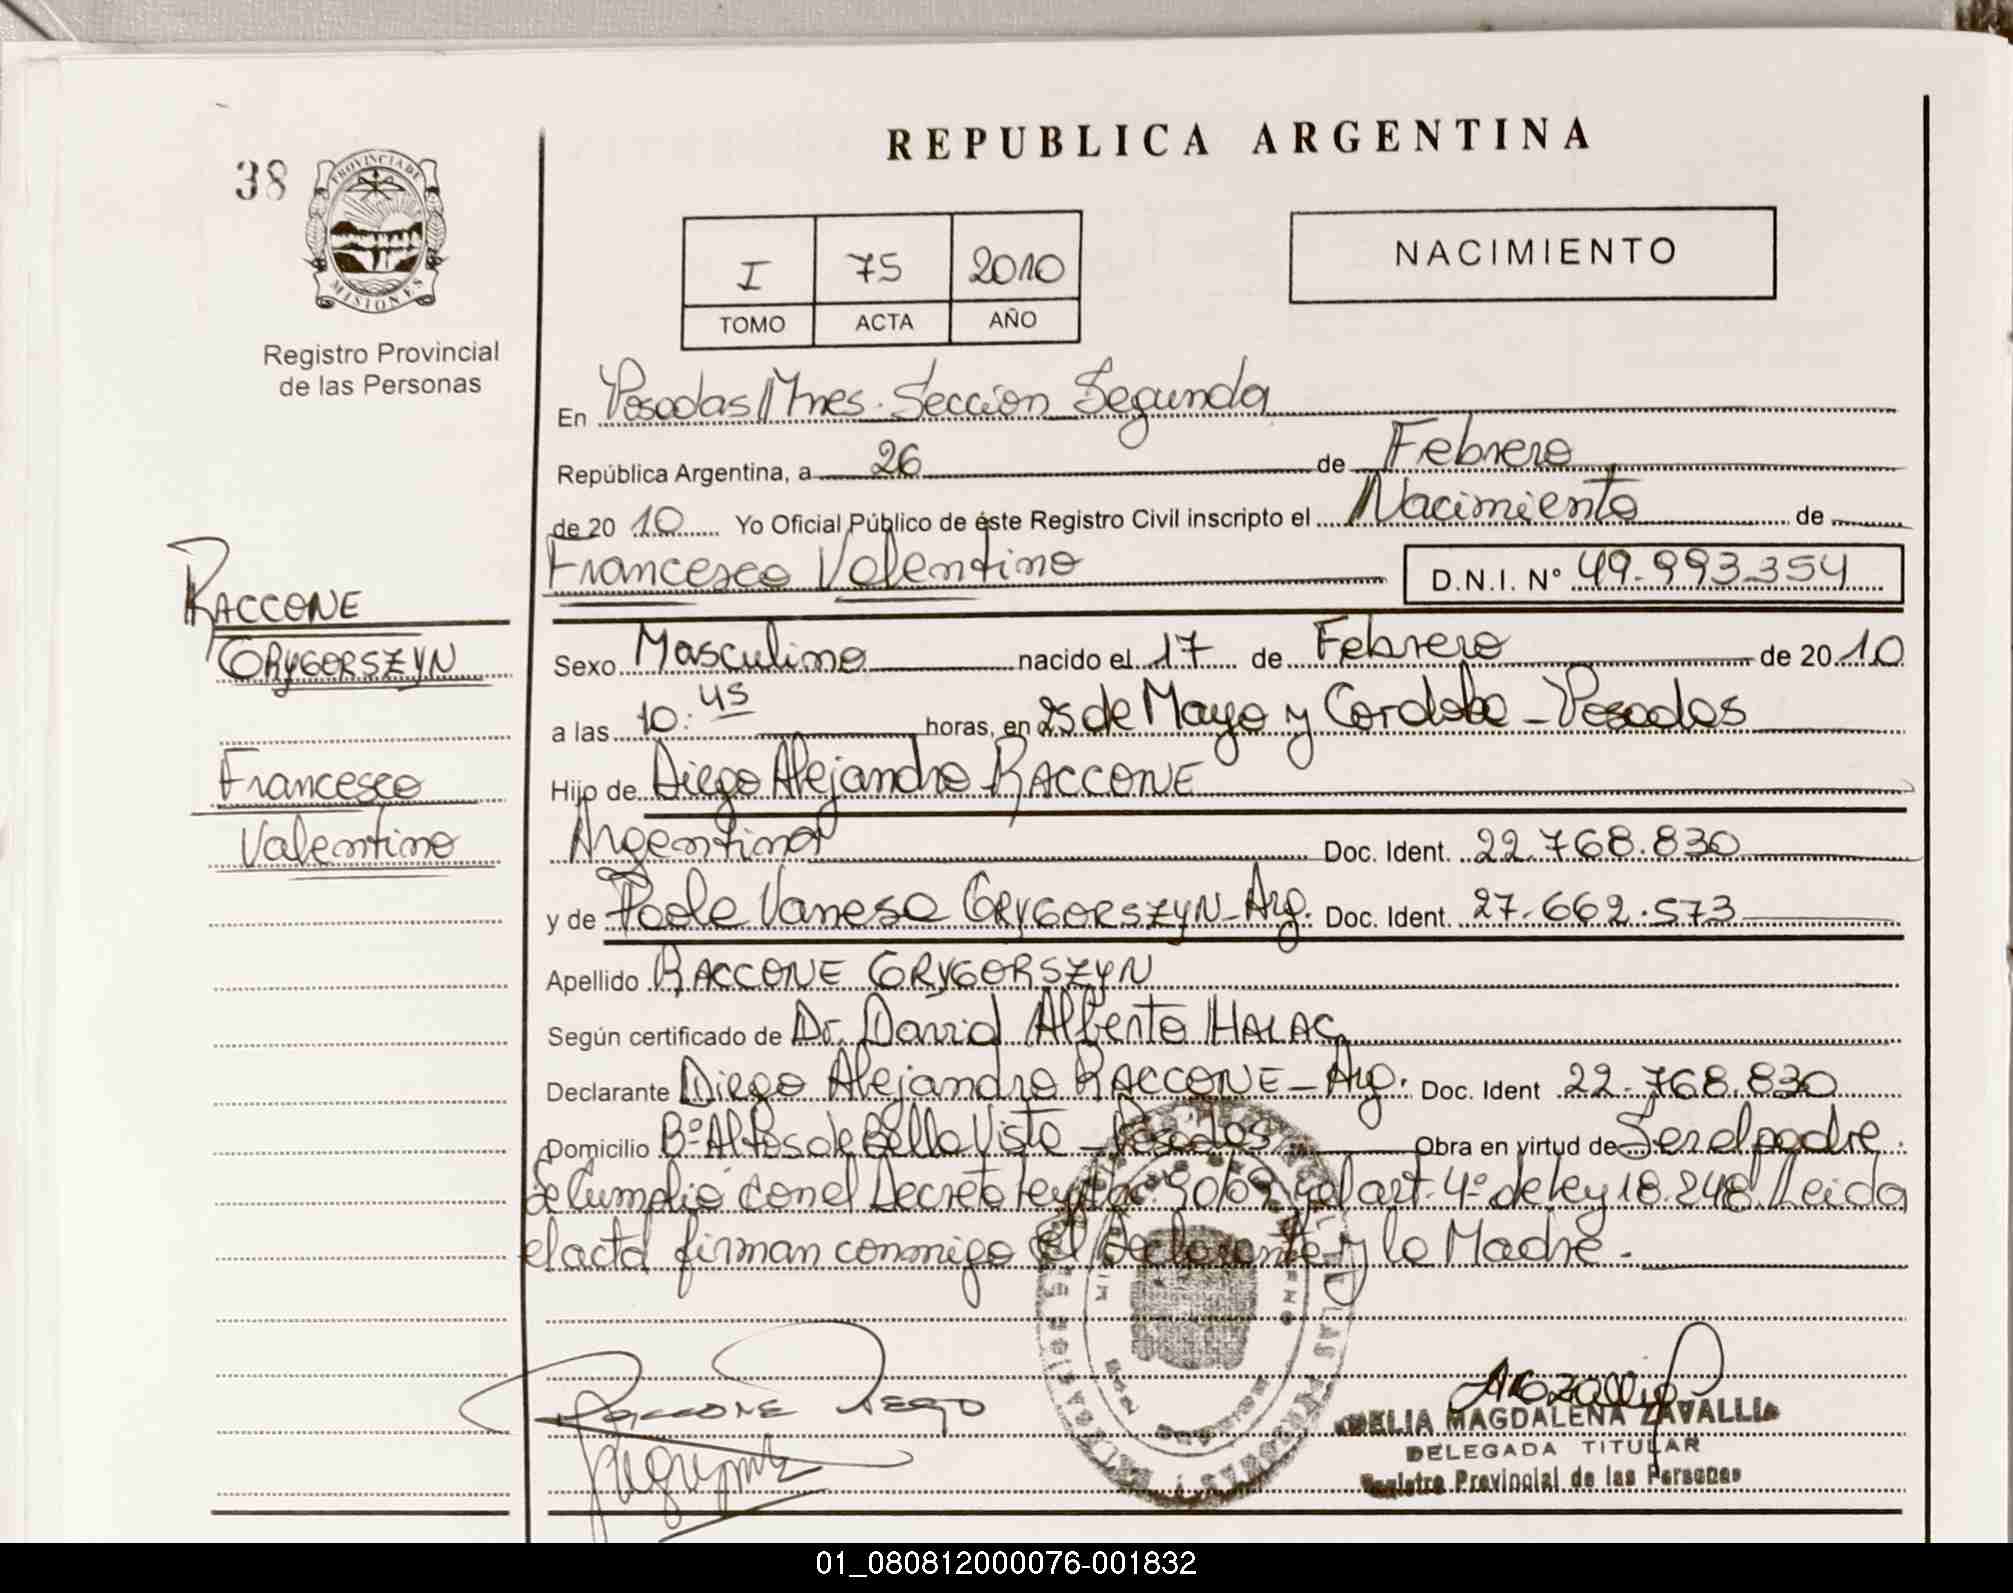 REPUBLICA ARGENTINA
38
PROVINCIA DE
MISIONES
Registro Provincial
de las Personas
I 75 2010
TOMO ACTA AÑO
NACIMIENTO
En Posadas Mnes. Sección Segunda
República Argentina, a 26 de Febrero
de 20 10 Yo Oficial Público de éste Registro Civil inscripto el Nacimiento de
Francesco Valentino D.N.I. N° 49.993.354
RACCONE
GRYGORSZYN
Francesco
Valentino
Sexo Masculino nacido el 17 de Febrero de 20 10
a las 10:45 horas, en 25 de Mayo y Cordoba - Posadas
Hijo de Diego Alejandro RACCONE
Argentina Doc. Ident. 22.768.830
y de Paola Vanesa GRYGORSZYN - Arg. Doc. Ident. 27.662.573
Apellido RACCONE GRYGORSZYN
Según certificado de Dr. David Alberto HALAC
Declarante Diego Alejandro RACCONE - Arg. Doc. Ident 22.768.830
Domicilio B° Altos de Bella Vista - Posadas Obra en virtud de Ser el padre
Se Cumplió con el Decreto Ley 90/09 y el art. 4° de ley 18.248. Leida
el acta firman conmigo el Declarante y la Madre.
RACCONE DIEGO
DELIA MAGDALENA ZAVALLI
DELEGADA TITULAR
Registro Provincial de las Personas
01_080812000076-001832